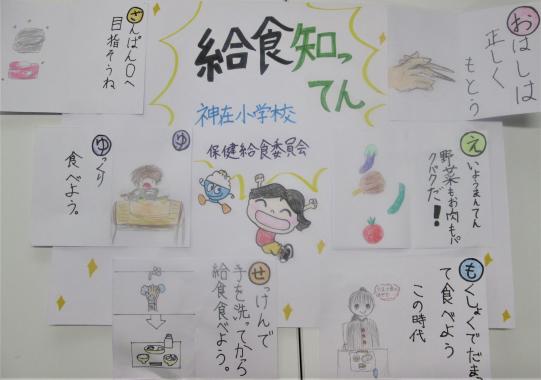 給食知っ
てん
神在小学校
保健給食委員会
おはしは
正しく
もとう
さんぱん0へ
目指そうね
えいようまんてん
野菜もお肉もパ
クパクだ!
ゆっくり
食べよう。
ゆ
せっけんで
手を洗ってから
給食食べよう。
もくしょくでだまっ
て食べよう
この時代